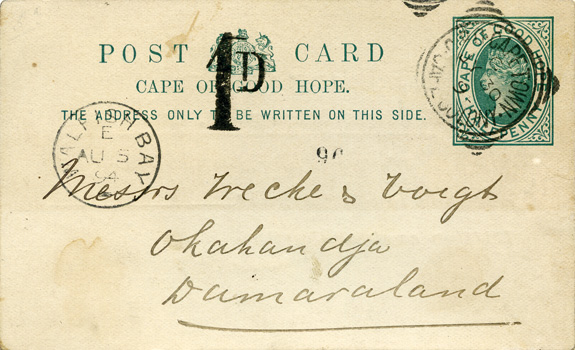 POST CARD
1D
CAPE OF GOOD HOPE.
THE ADDRESS ONLY TO BE WRITTEN ON THIS SIDE.
CAPE OF GOOD HOPE
PENNY
WALFISH BAY
E
AU 5
94
Messrs Wecke & Voigts
Okahandja
Damaraland